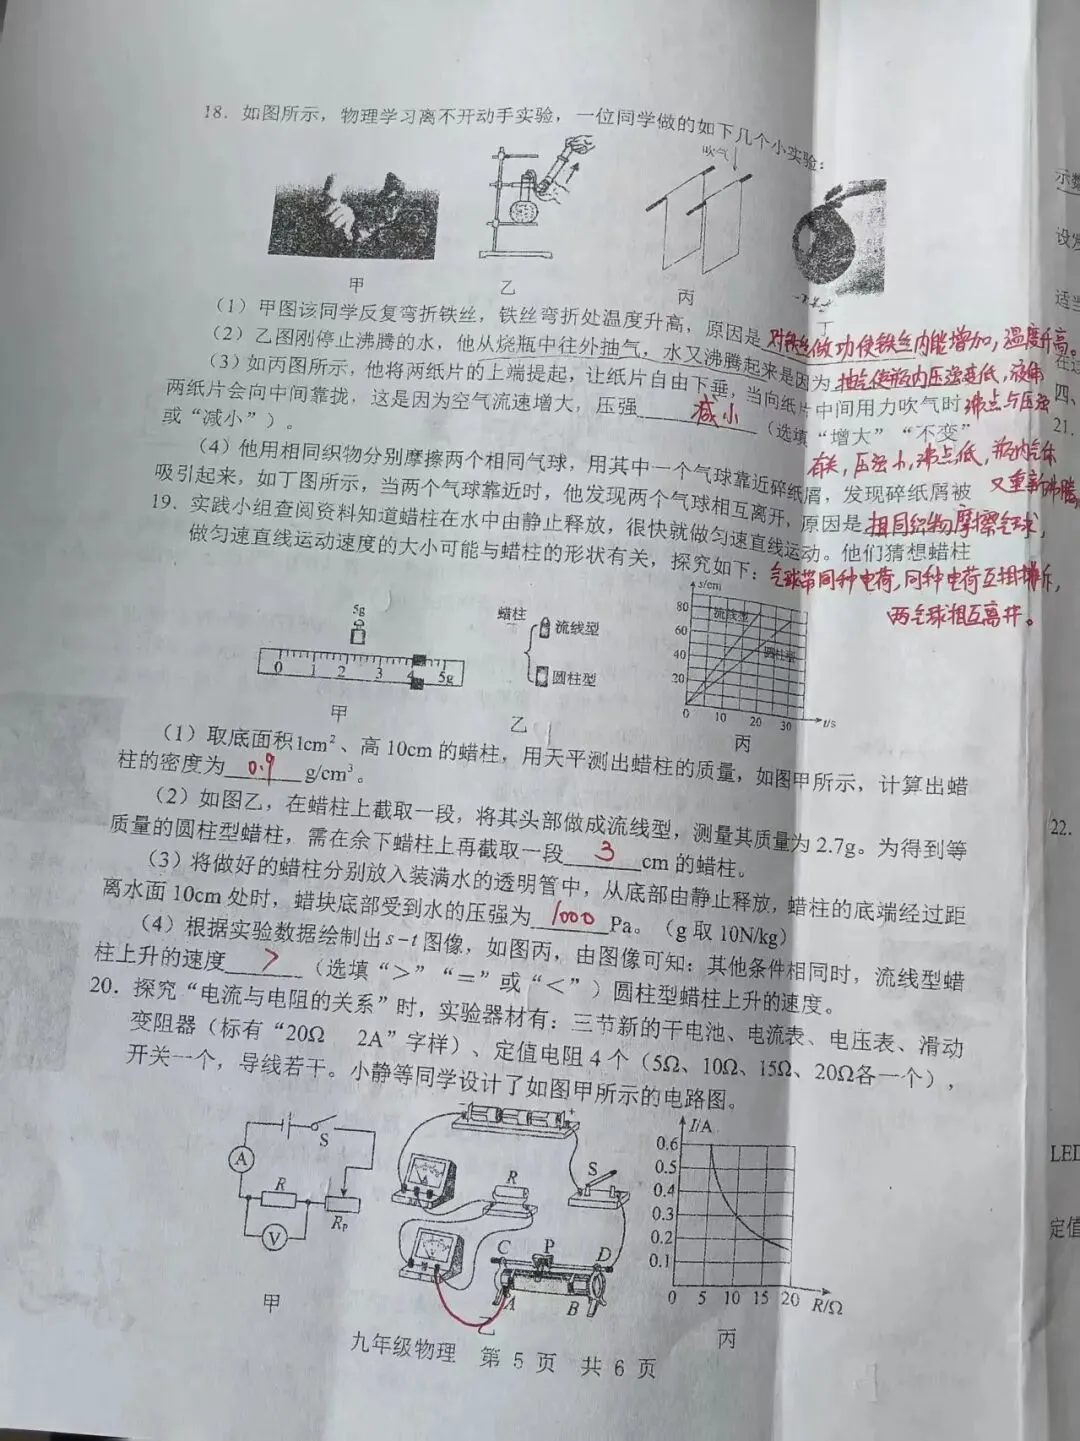 18. 如图所示，物理学习离不开动手实验，一位同学做的如下几个小实验：
吹气
甲
乙
丙
丁
(1) 甲图该同学反复弯折铁丝，铁丝弯折处温度升高，原因是对铁丝做功使铁丝内能增加，温度升高。
(2) 乙图刚停止沸腾的水，他从烧瓶中往外抽气，水又沸腾起来是因为抽气使瓶内压强变低，液体
沸点与压强
有关，压强小，沸点低，瓶内气体
又重新沸腾
(3) 如丙图所示，他将两纸片的上端提起，让纸片自由下垂，当向纸片中间用力吹气时
两纸片会向中间靠拢，这是因为空气流速增大，压强减小（选填“增大”“不变”
或“减小”）。
(4) 他用相同织物分别摩擦两个相同气球，用其中一个气球靠近碎纸屑，发现碎纸屑被
吸引起来，如丁图所示，当两个气球靠近时，他发现两个气球相互离开，原因是相同织物摩擦气球，
气球带同种电荷，同种电荷互相排斥，
两气球相互离开。
19. 实践小组查阅资料知道蜡柱在水中由静止释放，很快就做匀速直线运动。他们猜想蜡柱
做匀速直线运动速度的大小可能与蜡柱的形状有关，探究如下：
5g
0 1 2 3 4 5g
甲
蜡柱
流线型
圆柱型
乙
s/cm
80
60
40
20
0 10 20 30 t/s
流线型
圆柱型
丙
(1) 取底面积1cm²、高10cm的蜡柱，用天平测出蜡柱的质量，如图甲所示，计算出蜡
柱的密度为0.9 g/cm³。
(2) 如图乙，在蜡柱上截取一段，将其头部做成流线型，测量其质量为2.7g。为得到等
质量的圆柱型蜡柱，需在余下蜡柱上再截取一段3 cm的蜡柱。
(3) 将做好的蜡柱分别放入装满水的透明管中，从底部由静止释放，蜡柱的底端经过距
离水面10cm处时，蜡块底部受到水的压强为1000 Pa。（g取10N/kg）
(4) 根据实验数据绘制出s-t图像，如图丙，由图像可知：其他条件相同时，流线型蜡
柱上升的速度>（选填“>”“=”或“<”）圆柱型蜡柱上升的速度。
20. 探究“电流与电阻的关系”时，实验器材有：三节新的干电池、电流表、电压表、滑动
变阻器（标有“20Ω 2A”字样）、定值电阻4个（5Ω、10Ω、15Ω、20Ω各一个），
开关一个，导线若干。小静等同学设计了如图甲所示的电路图。
S
A
R
Rp
V
甲
R
S
C
P
D
A
B
乙
I/A
0.6
0.5
0.4
0.3
0.2
0.1
0 5 10 15 20 R/Ω
丙
九年级物理 第5页 共6页
示数
设
适当
四、
21.
22.
LED
定值